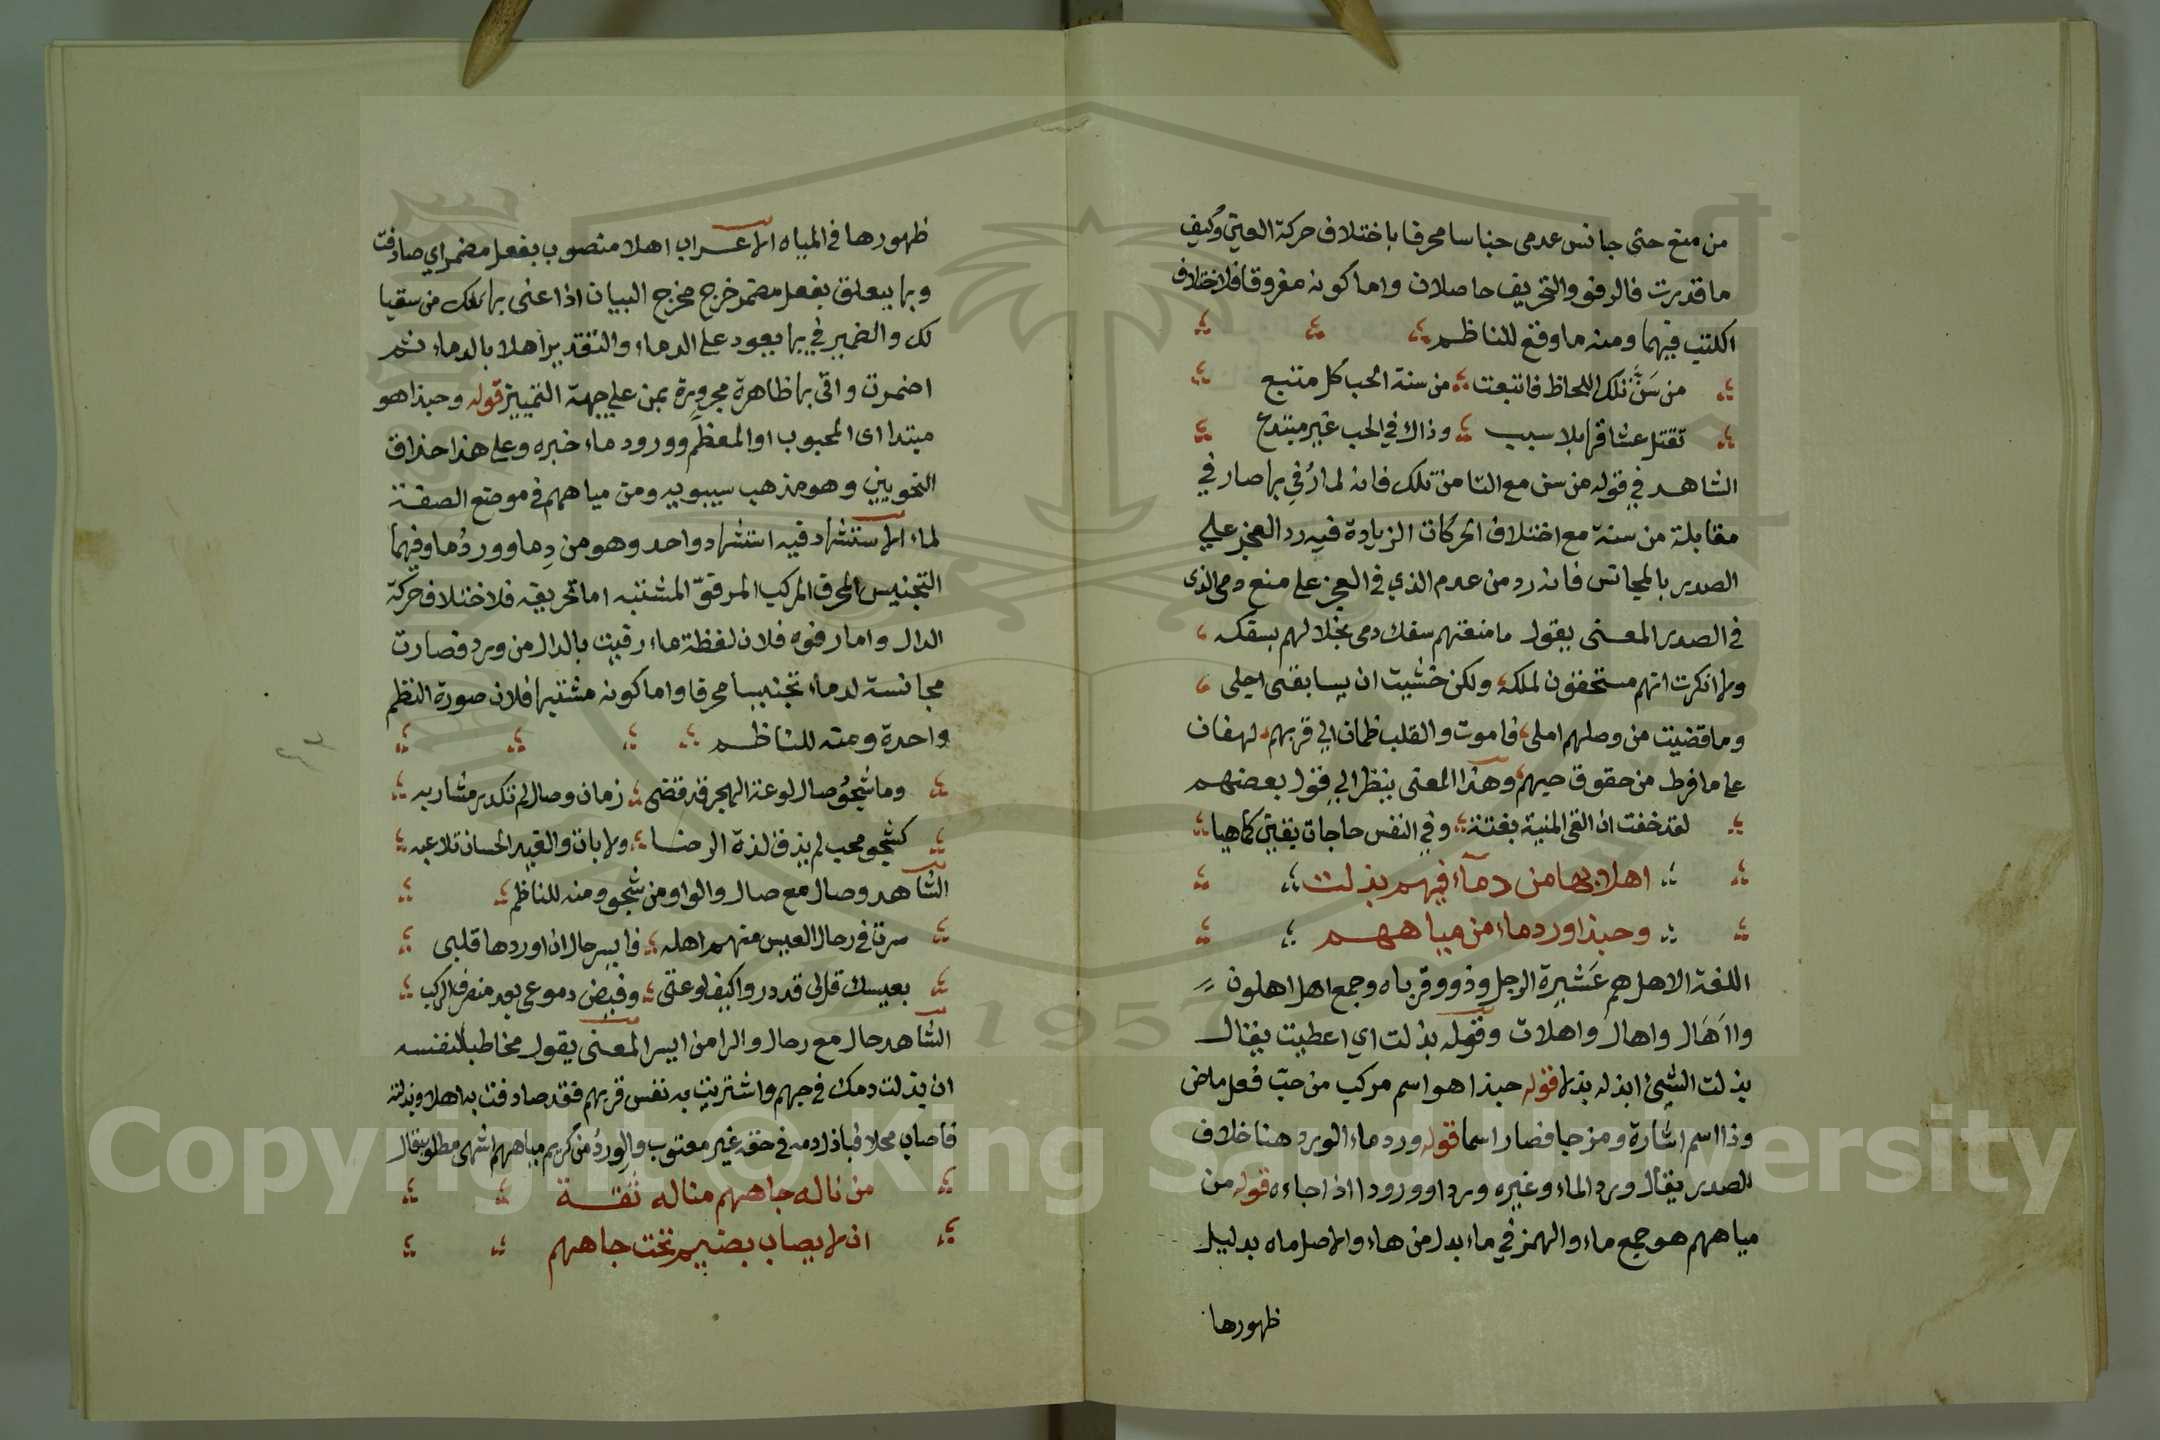 من منع حتى جانس عدمى جناسا محرفا باختلاف حركة العين وكيف
ما قدرت فالرفو والتحريف حاصلان واما كونه مفروقا فلاختلاف
الكتب فيهما ومنه ما وقع للناظم
من سن تلك اللحاظ فاتبعت من سنة الحب كل متبع
تقتل عشاقها بلا سبب وذاك في الحب غير مبتدع
الشاهد في قوله من سن مع التا من تلك فانه لما رُفي بها صار في
مقابلة من سنة مع اختلاف الحركات الزيادة فيه رد العجز على
الصدر بالمجانس فانه رد من عدم الذي في العجز على منع دمى الذى
في الصدر المعنى يقول ما منعتهم سفك دمى بخلا لهم بسفكه
ولا انكرت انهم مستحقون لملكه ولكن خشيت ان يسابقنى اجلى
وما قضيت من وصلهم املى فاموت والقلب ظمان الى قربهم لهفان
على ما فرط من حقوق حبهم وهذا المعنى ينظر الى قول بعضهم
لقد خفت ان القى المنية بغتة وفي النفس حاجات بقين كما هيا
اهلا بها من دماء فيهم بذلت
وحبذا ورد ماء من مياههم
اللغة الاهل هم عشيرة الرجل وذوو قرباه وجمع اهل اهلون
واأهال واهال واهلات وقوله بذلت اي اعطيت يقال
بذلت الشيئ ابذله بذلا قوله حبذا هو اسم مركب من حب فعل ماض
وذا اسم اشارة ومزجا فصار اسما قوله ورد ماء الورد هنا خلاف
الصدر يقال ورد الماء وغيره وردا وورودا اذا جاءه قوله من
مياههم هو جمع ماء والهمز في ماء بدل من هاء والاصل ماه بدليل
ظهورها
ظهورها في المياه الاعراب اهلا منصوب بفعل مضمر اي صادفت
وبها يتعلق بفعل مضمر خرج مخرج البيان اذا عنى بها تلك من سقيا
لك والضمير في بها يعود على الدماء والتقدير اهلا بالدماء ثم
اضمرت واتى بها ظاهرة مجرورة بمن على جهة التمييز قوله وحبذا هو
مبتدا اى المحبوب او المعظم وورود ماء خبره وعلى هذا حذاق
النحويين وهو مذهب سيبويه ومن مياههم في موضع الصفة
لماء الاستشهاد فيه استشهاد واحد وهو من دِما وورد ُما وفيهما
التجنيس المحرف المركب المرفوّ المشتبه اما تحريفه فلاختلاف حركة
الدال واما رفوه فلان لفظة ماء رفيت بالدال من ورد فصارت
مجانسة لدماء تجنيسا محرفا واما كونه مشتبها فلان صورة النظم
واحدة ومنه للناظم
وما شجوُ صال لوعة الهجر قد قضى زمان وصال لم تكدر مشاربه
كشجو محب لم يذق لذة الرضا ولا بات والغيد الحسان تلاعبه
الشاهد وصال مع صال والواو من شجو ومنه للناظم
سرت في رحال العيس منهم اهله فايسر حال ان اوردها قلبى
بعيسك قل لى قد دروا كيف لوعتى وفيض دموعى بعد منصرف الركب
الشاهد حال مع رحال والرا من ايسر المعنى يقول مخاطبا لنفسه
ان بذلت دمك في حبهم واشتريت به نفس قربهم فقد صادفت به اهلا وبذلته
فاصاب محلا فباذل دمه في حقه غير معتوب والورد من كريم مياههم اشهى مطلوب يقال
من ناله جاههم مناله ثقة
ان لا يصاب بضيم تحت جاههم
Copyright © King Saud University
1957